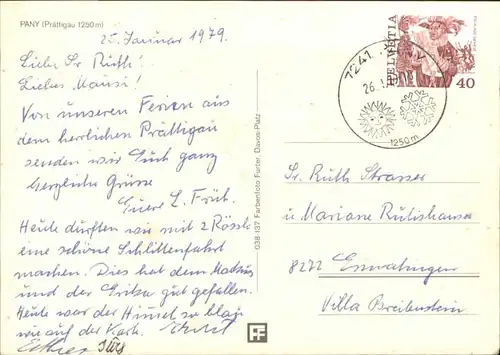 PANY (Prättigau 1250 m)
25. Januar 1979.
Liebe Sr. Ruth!
Liebes Mausi!
Von unseren Ferien aus
dem herrlichen Prättigau
senden wir Euch ganz
herzliche Grüsse
Euere L. Früh.
Heute durften wir mit 2 Rössl
eine schöne Schlittenfahrt
machen. Dies hat dem Markus
und der Erika gut gefallen.
Heute war der Himel so blau
wie auf der Karte.
Esther
038-137 Farbenfoto Furter, Davos-Platz
FF
7241 PANY
26.
1250 m
HELVETIA
40
Sr. Ruth Strasser
u Mariane Rülishauser
8272 Ermatingen
Villa Breitenstein